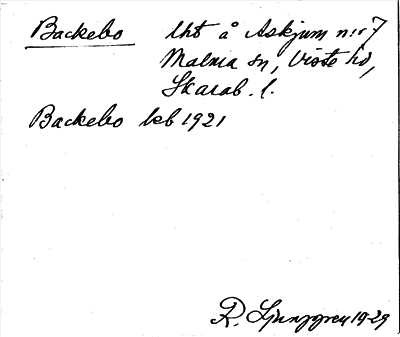 Backebo lht å Askjum nr 7
Malma sn, Viste hd,
Skarab. l.
Backebo kb 1921
R. Ljunggren 1929